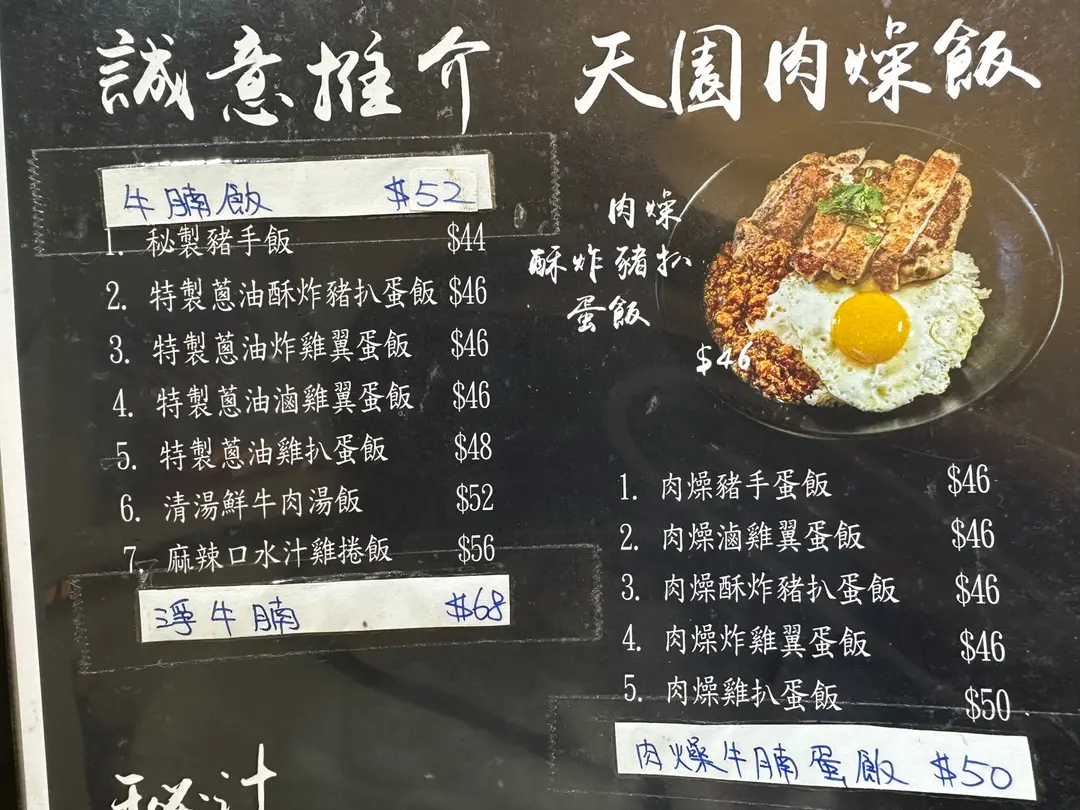 誠意推介
牛腩飯 $52
1. 秘製豬手飯 $44
2. 特製蔥油酥炸豬扒蛋飯 $46
3. 特製蔥油炸雞翼蛋飯 $46
4. 特製蔥油滷雞翼蛋飯 $46
5. 特製蔥油雞扒蛋飯 $48
6. 清湯鮮牛肉湯飯 $52
7. 麻辣口水汁雞捲飯 $56
淨牛腩 $68
秘汁
天園肉燥飯
肉燥
酥炸豬扒
蛋飯
$46
1. 肉燥豬手蛋飯 $46
2. 肉燥滷雞翼蛋飯 $46
3. 肉燥酥炸豬扒蛋飯 $46
4. 肉燥炸雞翼蛋飯 $46
5. 肉燥雞扒蛋飯 $50
肉燥牛腩蛋飯 $50